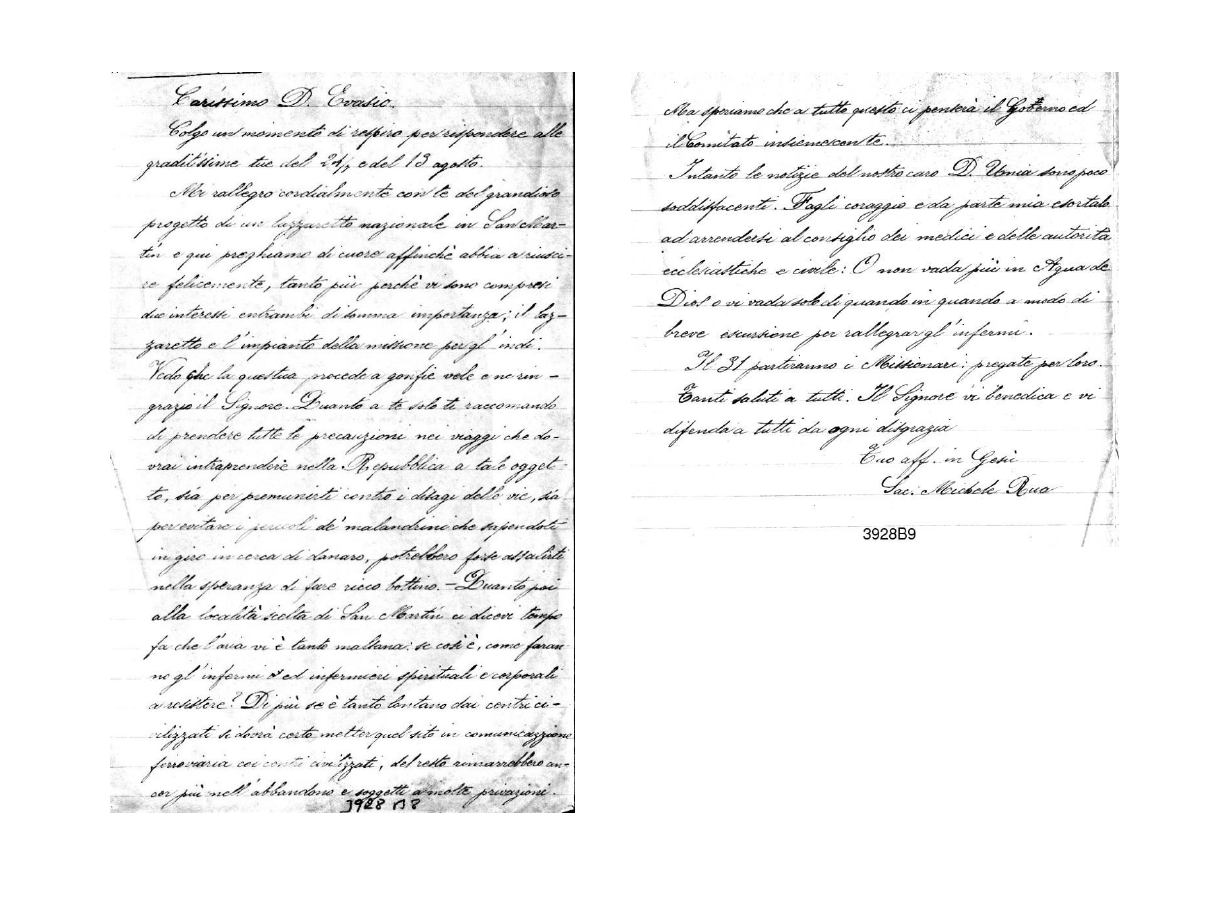 Carissimo D. Evasio.
Colgo un momento di respiro per rispondere alle
graditissime tue del 24/7 e del 13 agosto.
Mi rallegro cordialmente con te del grandioso
progetto di un lazzaretto nazionale in San Mar-
tin e qui preghiamo di cuore affinchè abbia a riusci-
re felicemente, tanto più perchè vi sono compresi
due interessi entrambi di somma importanza; il laz-
zaretto e l'impianto della missione per gl'indi.
Vedo che la questua procede a gonfie vele e ne rin-
grazio il Signore. Quanto a te solo ti raccomando
di prendere tutte le precauzioni nei viaggi che do-
vrai intraprendere nella Repubblica a tale ogget-
to, sia per premunirti contro i disagi delle vie, sia
per evitare i pericoli de' malandrini che sapendoti
in giro in cerca di danaro, potrebbero forse assalirti
nella speranza di fare ricco bottino. – Quanto poi
alla località scelta di San Martin ci dicevi tempo
fa che l'aria vi è tanto malsana: se così è, come faran
no gl'infermi ed infermieri spirituali e corporali
a resistere? Di più se è tanto lontano dai centri ci-
vilizzati si dovrà certo metter quel sito in comunicazione
ferroviaria coi centri civilizzati, del resto rimarrebbero an-
cor più nell'abbandono e soggetti a molte privazioni.
3928 B8
Ma speriamo che a tutto questo ci penserà il Governo ed
il Comitato insiememente.
Intanto le notizie del nostro caro D. Unia sono poco
soddisfacenti. Fagli coraggio e da parte mia esortalo
ad arrendersi al consiglio dei medici e delle autorità
ecclesiastiche e civile: O non vada più in Agua de
Dios o vi vada solo di quando in quando a modo di
breve escursione per rallegrar gl'infermi.
Il 31 partiranno i Missionari; pregate per loro.
Tanti saluti a tutti. Il Signore vi benedica e vi
difenda a tutti da ogni disgrazia
Tuo aff. in Gesù
Sac. Michele Rua
3928B9